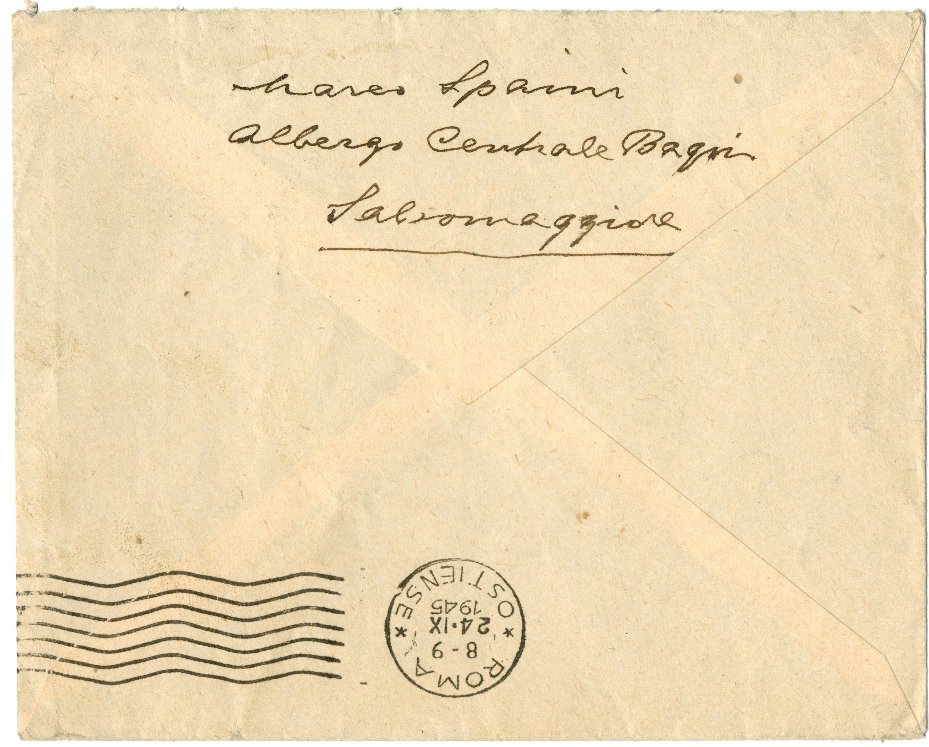 Marco Spaini
Albergo Centrale Bagni
Salsomaggiore
ROMA
8-9
24·IX
1945
* OSTIENSE *